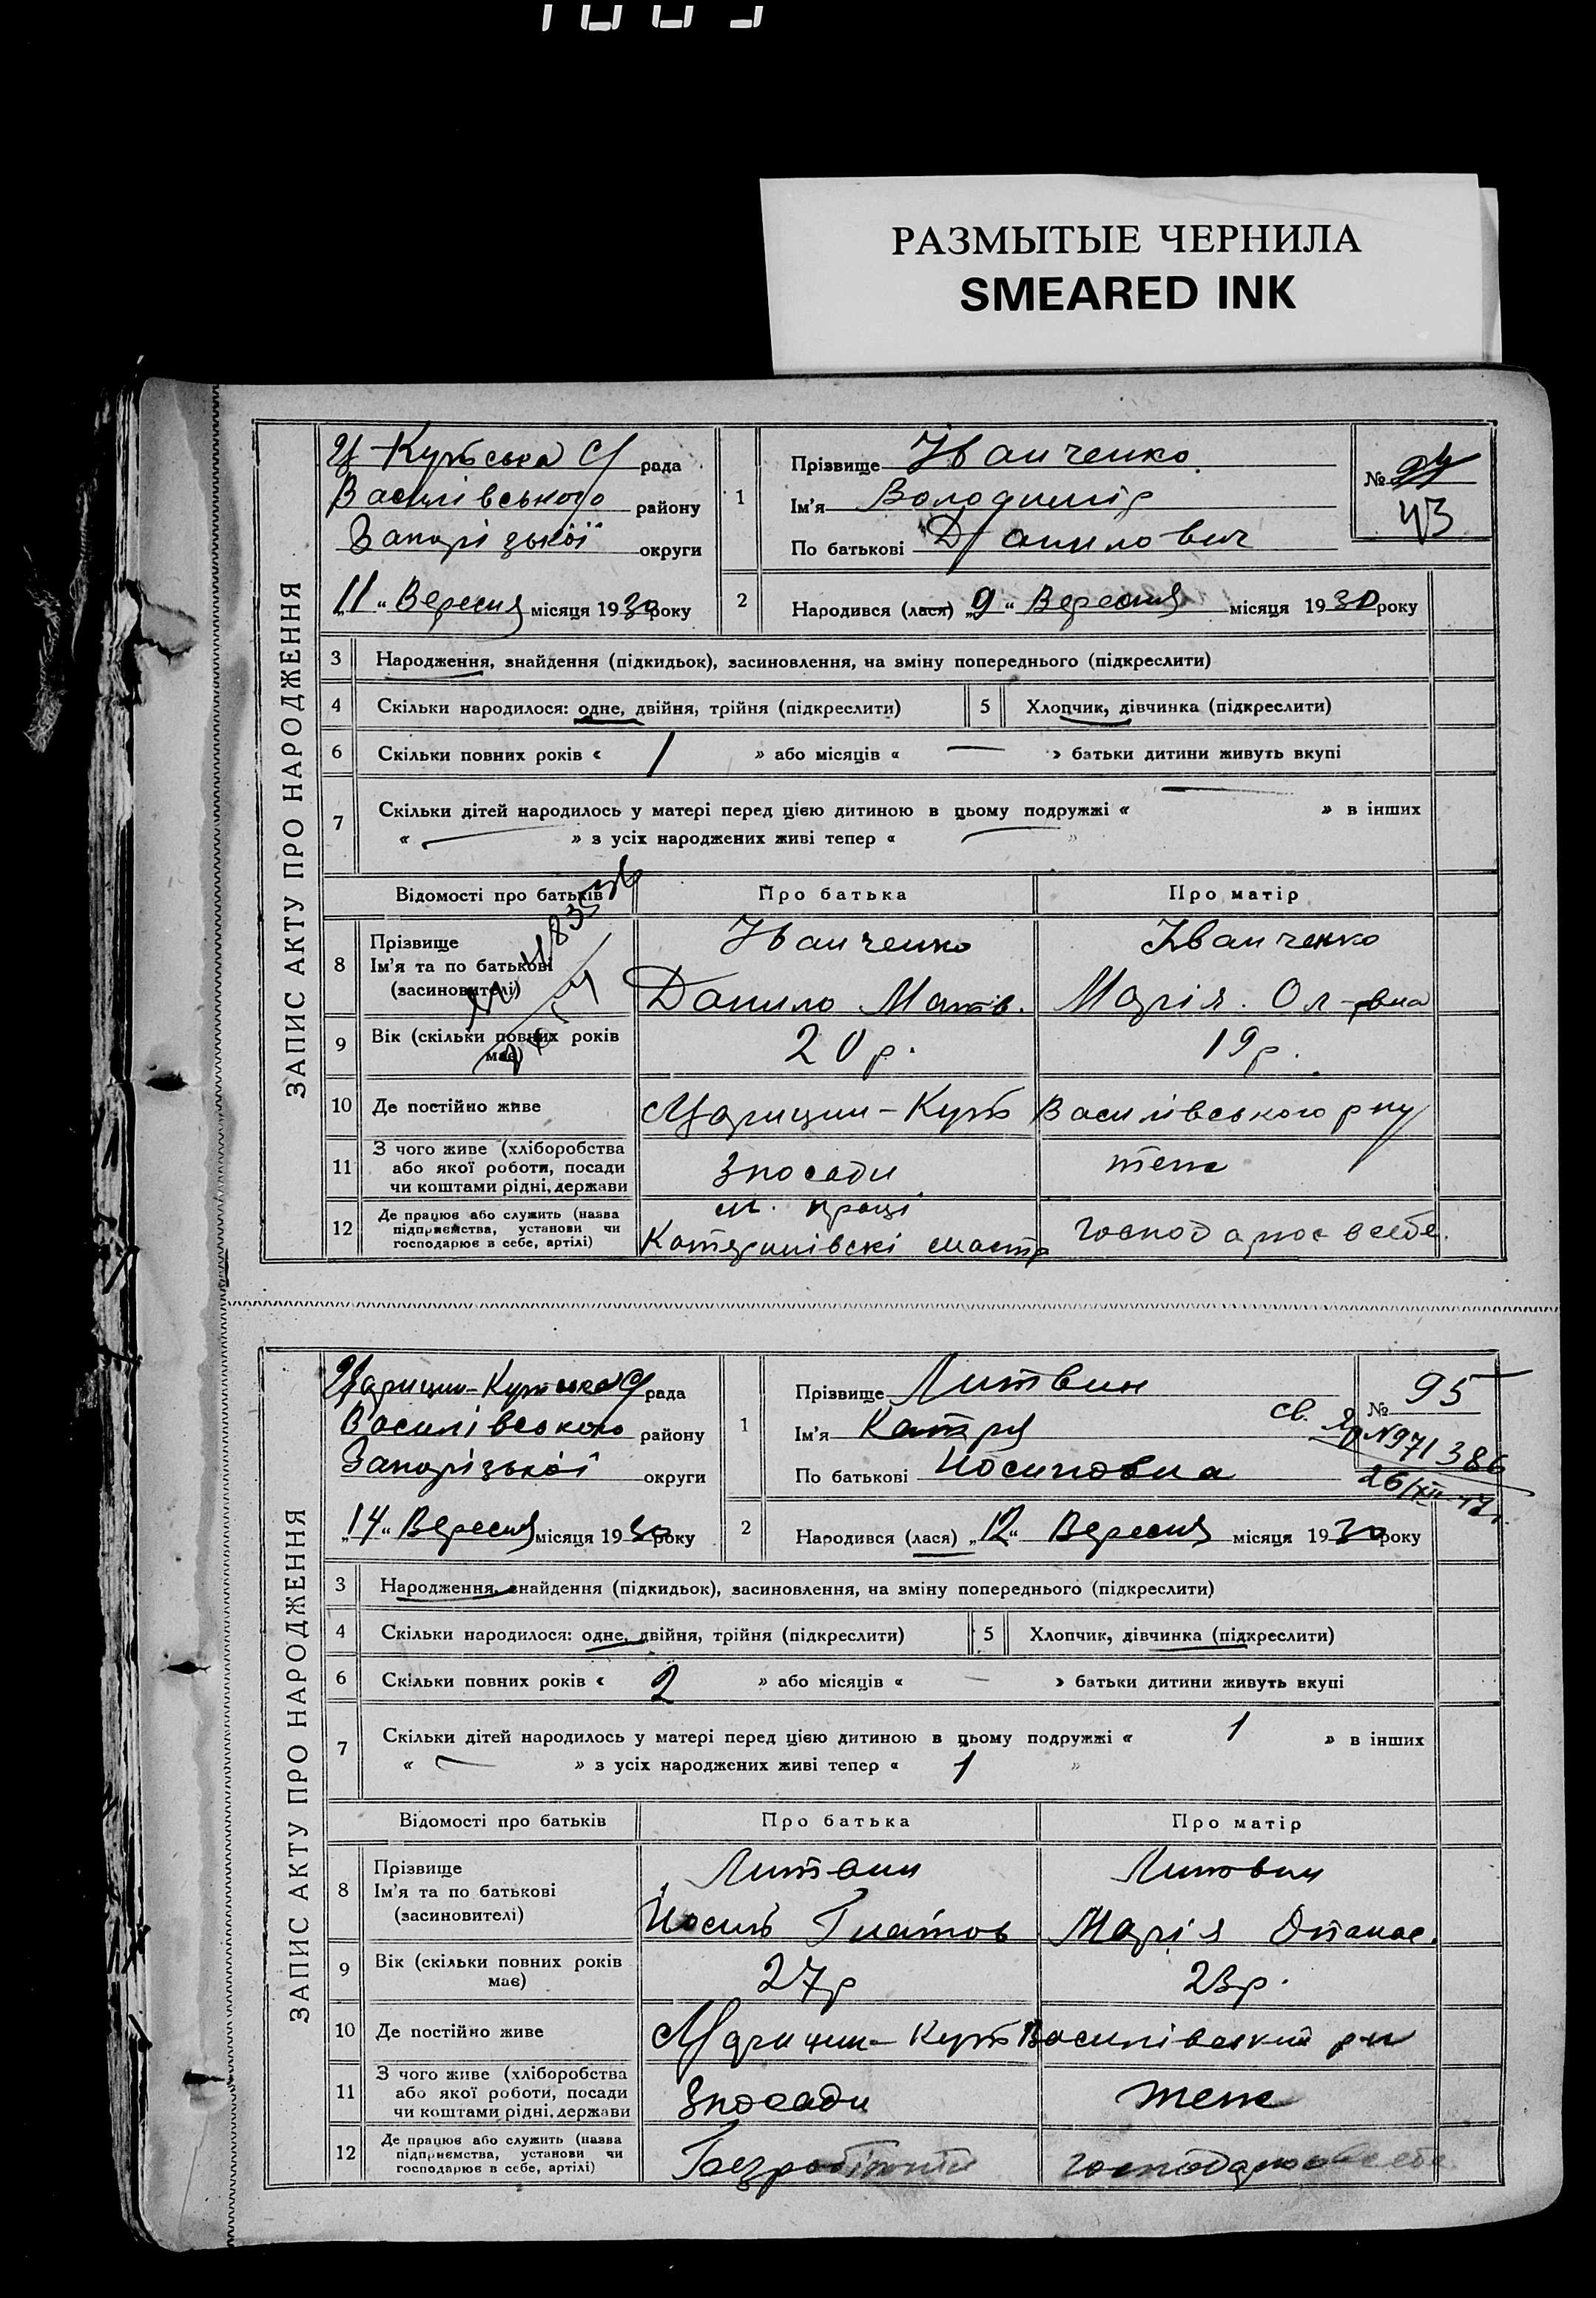 РАЗМЫТЫЕ ЧЕРНИЛА
SMEARED INK
ЗАПИС АКТУ ПРО НАРОДЖЕННЯ
Ц-Кутська С/ рада
Василівського району
Запорізької округи
„11“ Вересня місяця 1930 року
1 Прізвище Іванченко
Ім'я Володимір
По батькові Данилович
№ 94
43
2 Народився (лася) „9“ Вересня місяця 1930 року
3 Народження, знайдення (підкидьок), засиновлення, на зміну попереднього (підкреслити)
4 Скільки народилося: одне, двійня, трійня (підкреслити) 5 Хлопчик, дівчинка (підкреслити)
6 Скільки повних років « 1 » або місяців « — » батьки дитини живуть вкупі
7 Скільки дітей народилось у матері перед цією дитиною в цьому подружжі « — » в інших
« — » з усіх народжених живі тепер « — »
Відомості про батьків Про батька Про матір
8 Прізвище Іванченко Іванченко
Ім'я та по батькові
(засиновителі) Данило Матв. Марія Ол-вна
9 Вік (скільки повних років має) 20 р. 19 р.
10 Де постійно живе Царицин-Кут Василівського р-ну
11 З чого живе (хліборобства або якої роботи, посади чи коштами рідні, держави зпосади теж
12 Де працює або служить (назва підприємства, установи чи господарює в себе, артілі) м. праці
Катеринівскі господарює в себе.
ЗАПИС АКТУ ПРО НАРОДЖЕННЯ
Царицин-Кутська С/ рада
Василівського району
Запорізької округи
„14“ Вересня місяця 1930 року
1 Прізвище Литвин
Ім'я Катря
По батькові Йосиповна
№ 95
св. №971386
26/XII-47
2 Народився (лася) „12“ Вересня місяця 1930 року
3 Народження, знайдення (підкидьок), засиновлення, на зміну попереднього (підкреслити)
4 Скільки народилося: одне, двійня, трійня (підкреслити) 5 Хлопчик, дівчинка (підкреслити)
6 Скільки повних років « 2 » або місяців « — » батьки дитини живуть вкупі
7 Скільки дітей народилось у матері перед цією дитиною в цьому подружжі « 1 » в інших
« — » з усіх народжених живі тепер « 1 »
Відомості про батьків Про батька Про матір
8 Прізвище Литвин Литвин
Ім'я та по батькові
(засиновителі) Йосип Гнатов Марія Опанас.
9 Вік (скільки повних років має) 27 р 23 р.
10 Де постійно живе Царицин-Кут Василівский р-н
11 З чого живе (хліборобства або якої роботи, посади чи коштами рідні, держави зпосади теж
12 Де працює або служить (назва підприємства, установи чи господарює в себе, артілі) господарює в себе